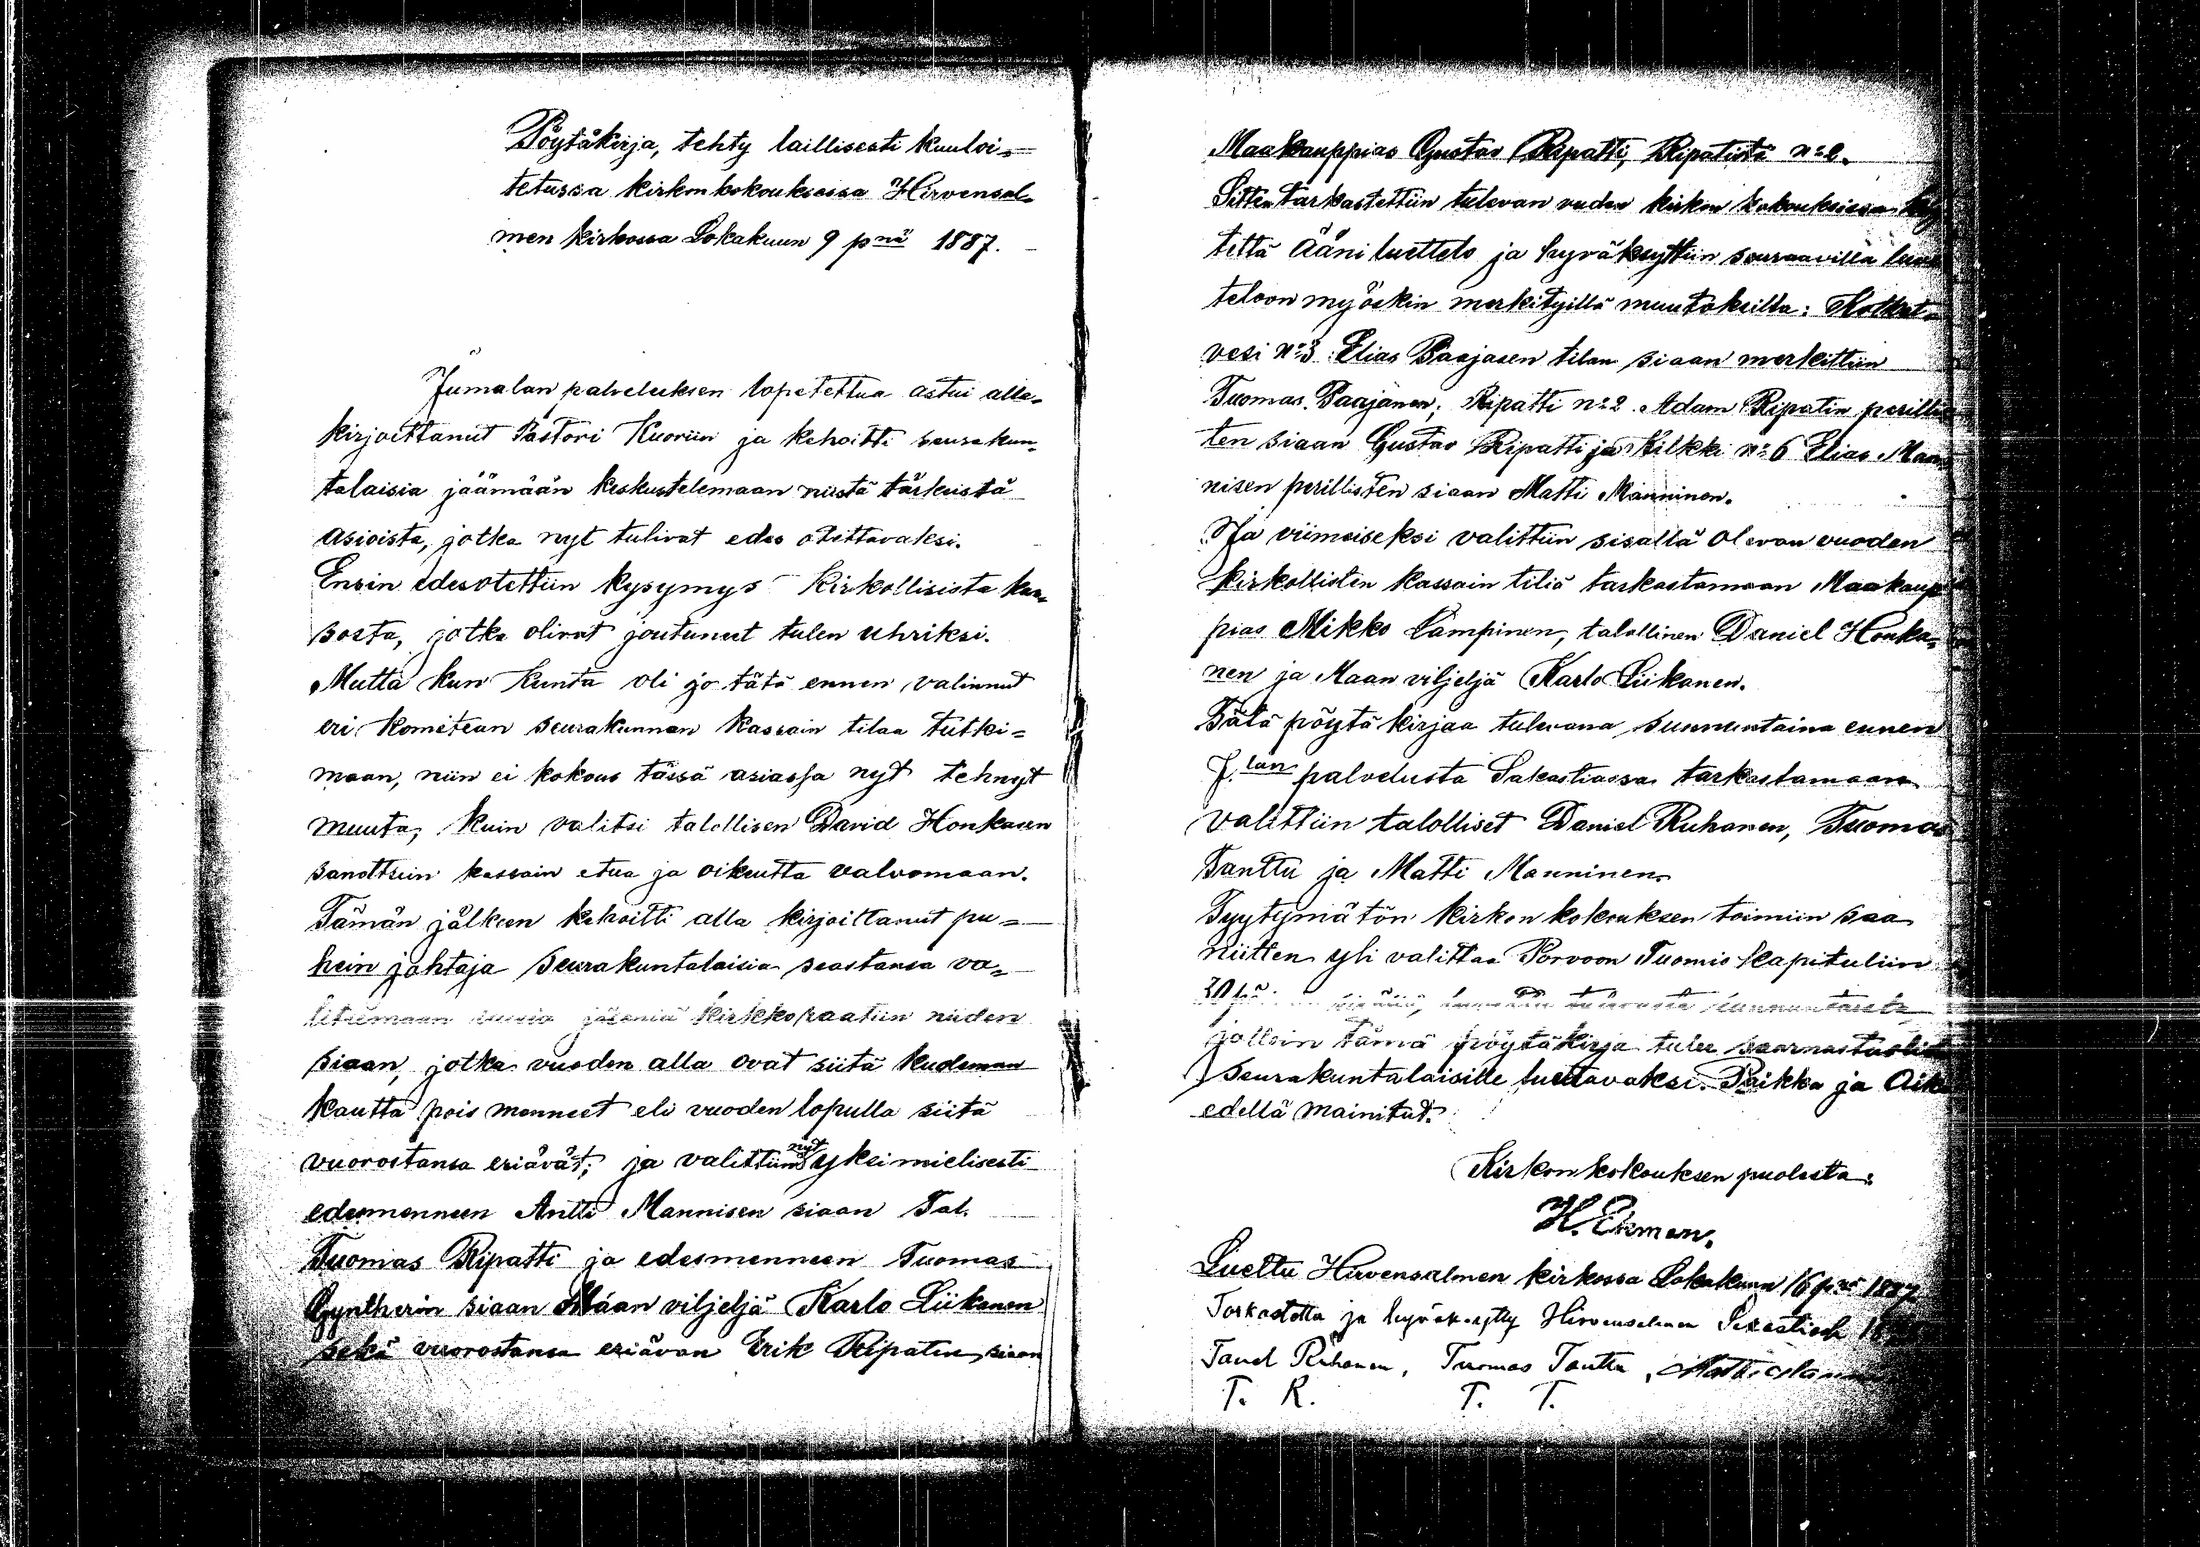 Pöytäkirja, tehty laillisesti kuuloi=
tetussa kirkonkokouksessa Hirvensal=
men kirkossa Lokakuun 9 pnä 1887.
Jumalan palveluksen lopetettua astui alle=
kirjoittanut Pastori Kuoriin ja kehoitti seurakun=
talaisia jäämään keskustelemaan niistä tärkeistä
asioista, jotka nyt tulivat edes otettavaksi.
Ensin edesotettiin kysymys kirkollisista kas=
soista, jotka olivat joutunut tulen uhriksi.
Mutta kun kunta oli jo tätä ennen valinnut
eri komitean seurakunnan kassain tilaa tutki=
maan, niin ei kokous tässä asiassa nyt tehnyt
muuta, kuin valitsi talollisen David Honkasen
sanottuin kassain etua ja oikeutta valvomaan.
Tämän jälkeen kehoitti alla kirjoittanut pu=
hein johtaja seurakuntalaisia seastansa va=
litsemaan uusia jäseniä kirkkoraatiin niiden
siaan, jotka vuoden alla ovat siitä kuoleman
kautta pois menneet eli vuoden lopulla siitä
vuorostansa eriävät; ja valittiin nyt yksimielisesti
edesmenneen Antti Mannisen siaan Tal.
Tuomas Ripatti ja edesmenneen Tuomas
Gyntherin siaan Maan viljeljä Karlo Liikanen
sekä vuorostansa eriävän Erik Ripatin siaan
Maakauppias Gustav Ripatti, Ripatista No 2.
Sitten tarkastettiin tulevan vuoden kirkon kokouksissa
tettä ääniluettelo ja hyväksyttiin seuraavilla luet
teloon myöskin merkityillä muutoksilla: Kotkat=
vesi No 3 Elias Paajasen tilan siaan merkittiin
Tuomas Paajanen; Ripatti No 2 Adam Ripatin perillis
ten siaan Gustav Ripatti ja Kilkki No 6 Elias Man
nisen perillisten siaan Matti Manninen.
Ja viimeiseksi valittiin sisällä olevan vuoden
kirkollisten kassain tiliä tarkastamaan Maakaup
pias Mikko Lampinen, talollinen Daniel Honka=
nen ja Maan viljeljä Karlo Liikanen.
Tätä pöytäkirjaa tulevana sunnuntaina ennen
J.lan palvelusta Sakastiassa tarkastamaan
valittiin talolliset Daniel Ruhanen, Tuomas
Tanttu ja Matti Manninen.
Tyytymätön kirkon kokouksen toimiin saa
niitten yli valittaa Porvoon Tuomio kapituliin
30 tulevasta sunnuntaista
jolloin tämä pöytäkirja tulee saarnastuolista
seurakuntalaisille luettavaksi. Paikka ja Aika
edellä mainitut.
Kirkonkokouksen puolesta:
H. Ekman.
Luettu Hirvensalmen kirkossa Lokakuun 16 pnä 1887
Tarkastettu ja hyväksytty Hirvensalmen
Taneli Ruhanen, Tuomas Tanttu, Matti Manninen
T. R. T. T.